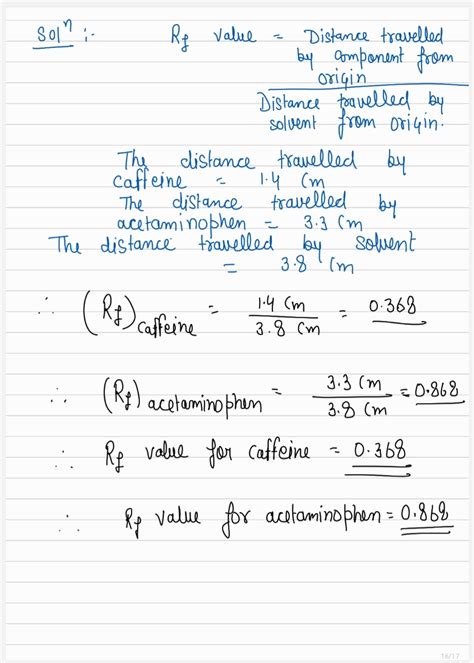 Solⁿ :- Rf value = Distance travelled
by component from
origin
Distance travelled by
solvent from origin.
The distance travelled by
caffeine = 1.4 cm
The distance travelled by
acetaminophen = 3.3 cm
The distance travelled by solvent
= 3.8 cm
∴ (Rf) caffeine = 1.4 cm / 3.8 cm = 0.368
∴ (Rf) acetaminophen = 3.3 cm / 3.8 cm = 0.868
∴ Rf value for caffeine = 0.368
∴ Rf value for acetaminophen = 0.868
16/17